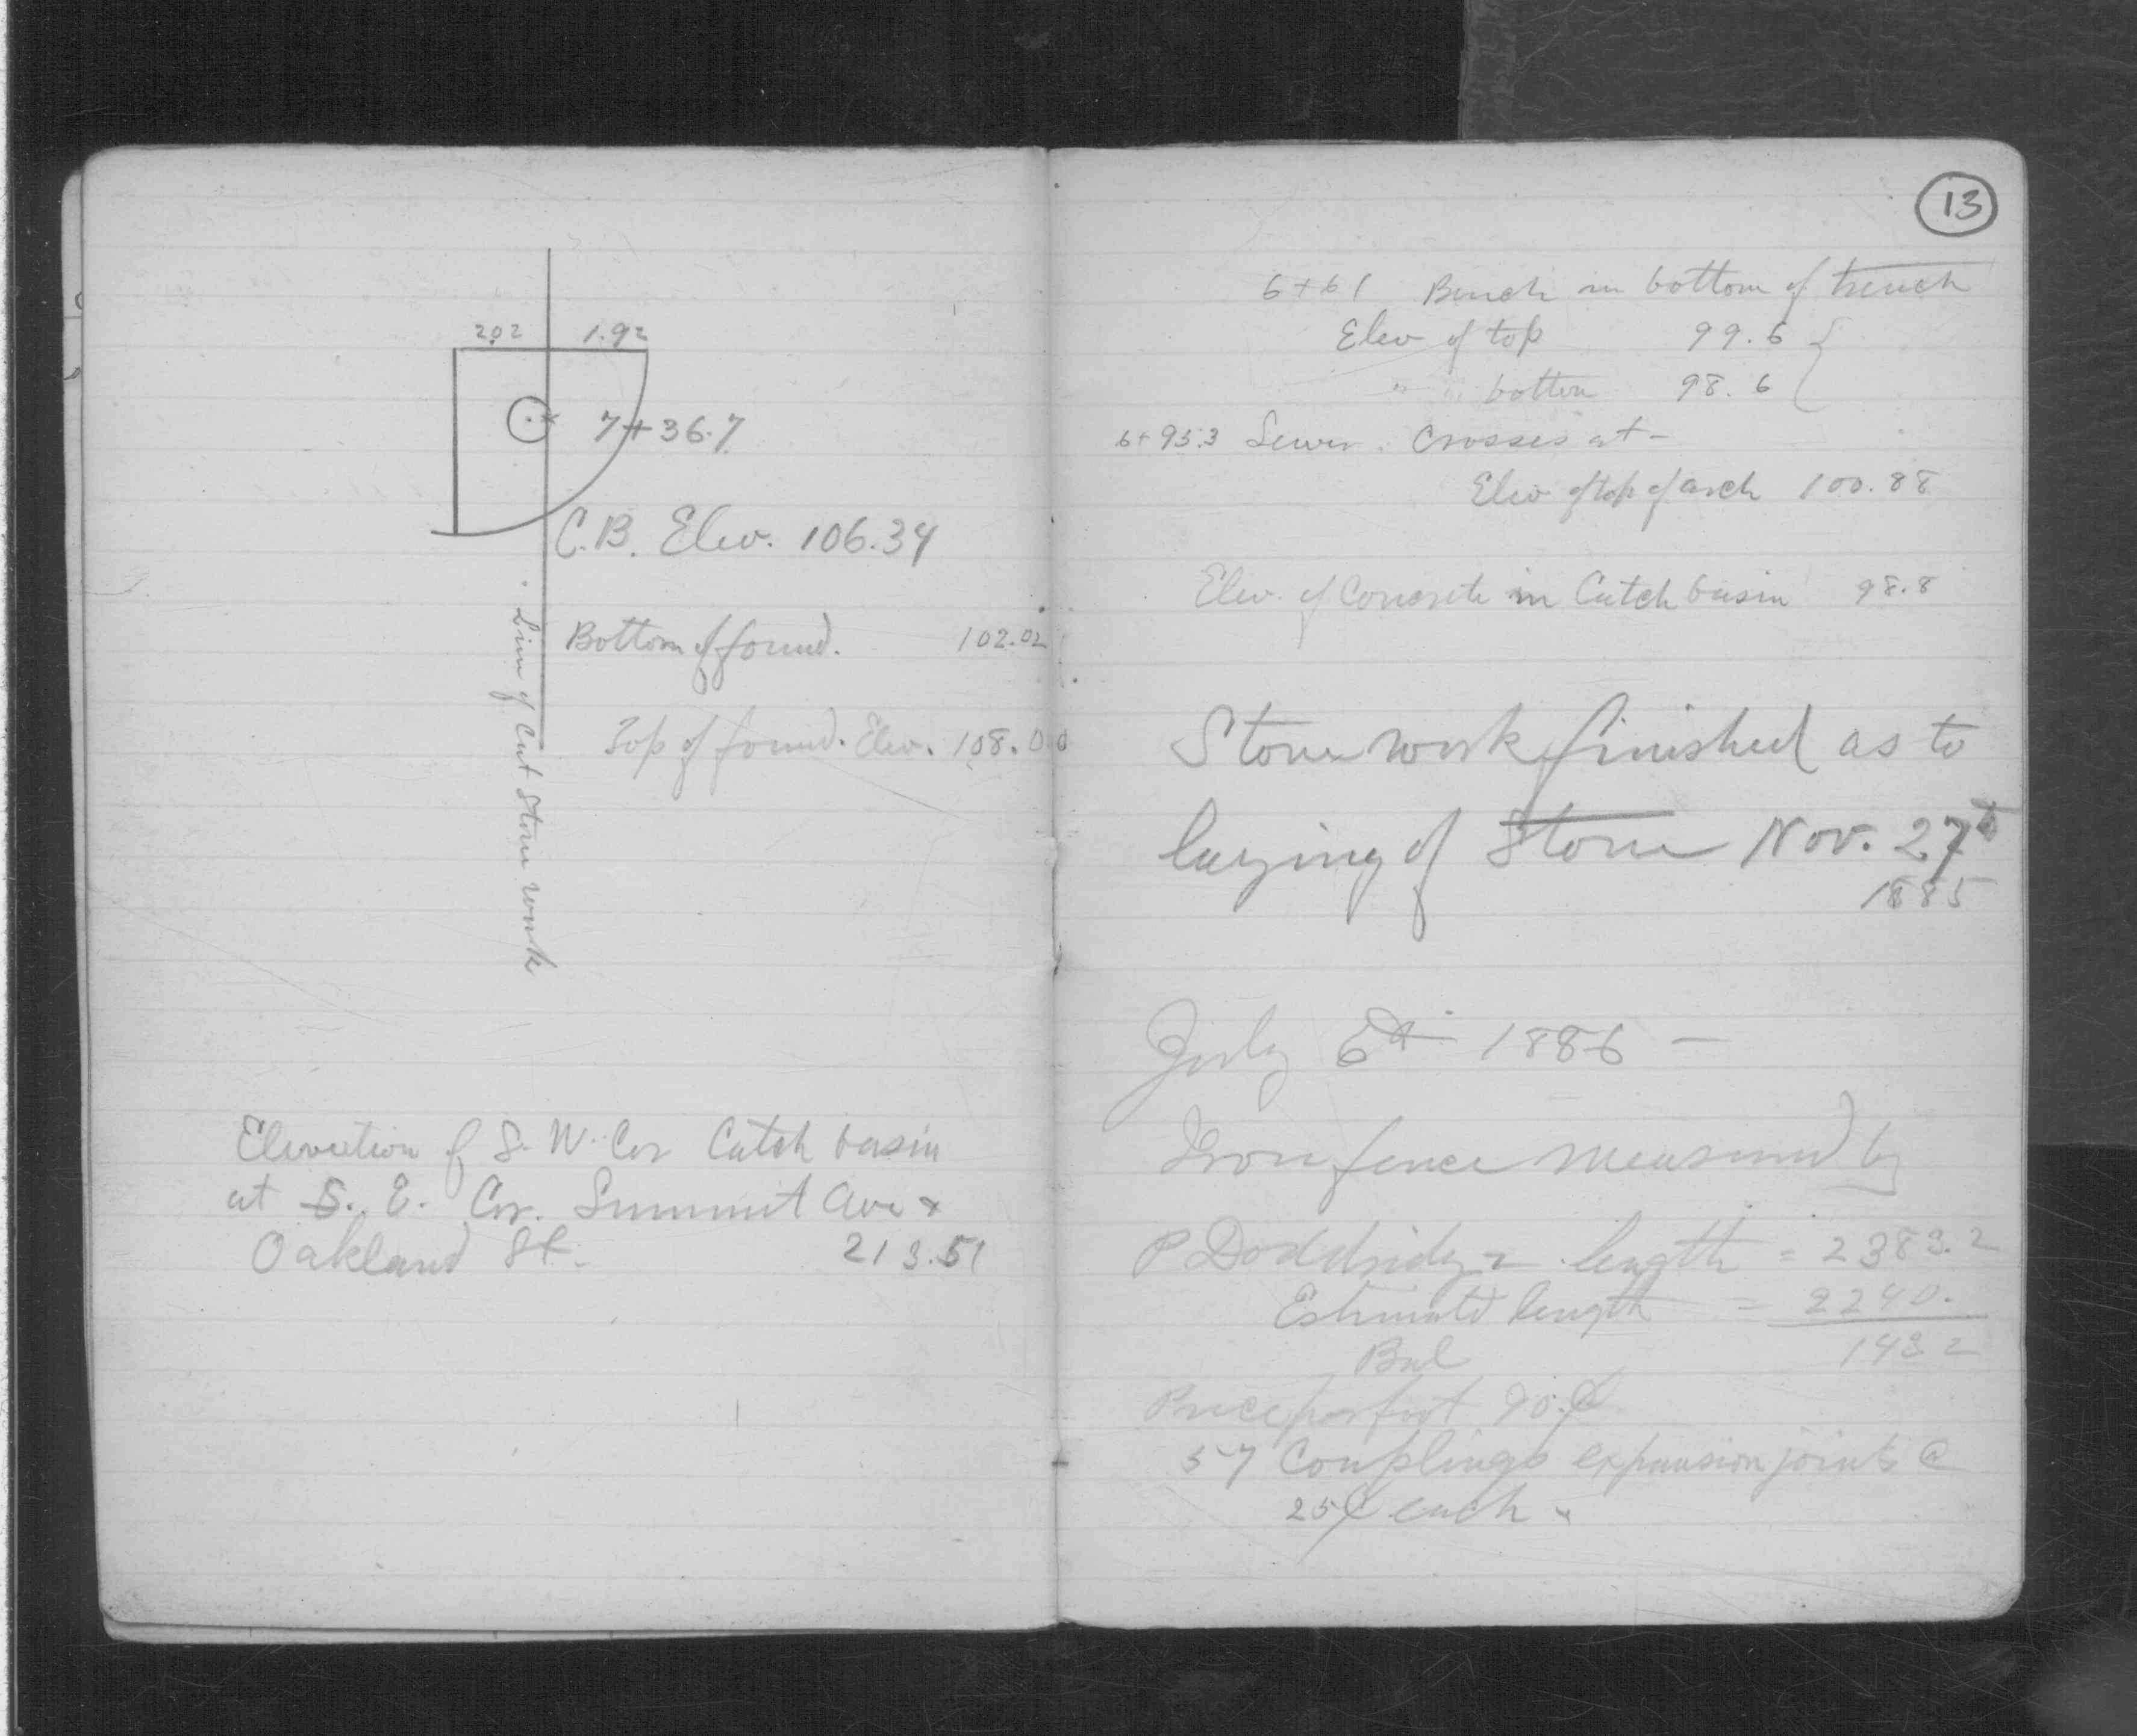 2.02 1.92
7+36.7
C.B. Elev. 106.34
Line of Cut Stone work
Bottom of found. 102.02
Top of found. Elev. 108.00
Elevation of S. W. Cor Catch basin
at S. E. Cor. Summit Ave &
Oakland St. 213.51
13
6+61 Bench in bottom of trench
Elev of top 99.6
" " bottom 98.6
6+95.3 Sewer Crosses at -
Elev of top of arch 100.88
Elev. of Concrete in Catch basin 98.8
Stone work finished as to
laying of Stone Nov. 27th
1885
July 6th 1886 —
Iron fence measured by
P Doddridge = length = 2383.2
Estimated length = 2240.
Bal 143 2
Price per foot 90 ¢
57 Couplings expansion joints @
25¢ each